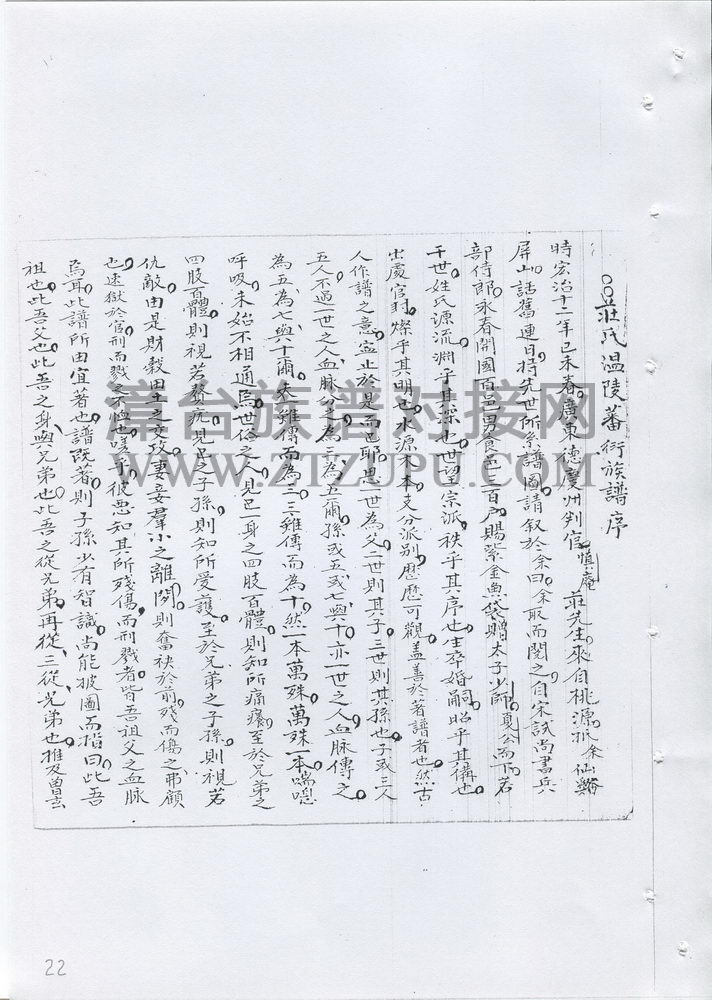 莊氏溫陵蕃衍族譜序
時宏治十二年己未春廣東德慶州判官慎庵莊先生來自桃源抵余仙谿
屏山話舊連日持先世所系譜圖請叙於余曰余取而閱之自宋試尚書兵
部侍郎永春開國百邑男食邑三百戶賜紫金魚袋贈太子少師夏公而下若
干世姓氏源流淵乎其深也世望宗派秩乎其序也生卒婚嗣昭乎其備也
出處官封燦乎其明也水源木本支分派別歷歷可觀盖善於著譜者也然古
人作譜之意寔止於是而已耶思一世為父二世則其子三世則其孫也子或三人
五人不過一世之人血脉分之為三為五爾孫或五或七與十亦一世之人血脉傳之
為五為七與十爾夫雖傳而為三三雖傳而為十然一本萬殊萬殊一本喘息
呼吸未始不相通焉世俗之人見己一身之四肢百體則知所痛癢至於兄弟之
四肢百體則視若贅疣見己之子孫則知所愛護至於兄弟之子孫則視若
仇敵由是財穀田土之交攻妻妾羣小之離閒則奮袂於前殘而傷之弗顧
也逮獄於官刑而戮之不恤也嗟乎彼惡知其所殘傷而刑戮者皆吾祖父之血脉
焉耳此譜所由宜著也譜既著則子孫少有智識尚能披圖而指曰此吾
祖也此吾父也此吾之身與兄弟也此吾之從兄弟再從三從兄弟也推及曾玄
22
漳台族谱对接网
WWW.ZTZUPU.COM